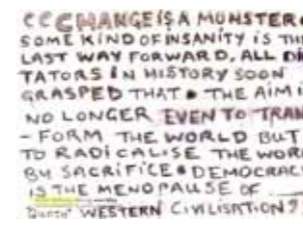 CHANGE IS A MONSTER
SOME KIND OF INSANITY IS THE
LAST WAY FORWARD. ALL DI
TATORS IN HISTORY SOON
GRASPED THAT • THE AIM I
NO LONGER EVEN TO TRAN
- FORM THE WORLD BUT
TO RADICALISE THE WOR
BY SACRIFICE • DEMOCRAC
IS THE MENOPAUSE OF
WESTERN CIVILISATION?